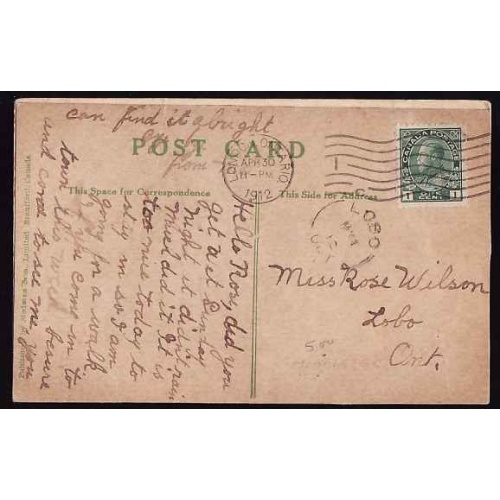 can find it alright
POST CARD
from
LONDON ONTARIO
APR 30
11-PM
1912
CANADA POSTAGE
1 CENT 1
This Space for Correspondence
This Side for Address
LOBO
MY 1
12
ONT
Hello Rose, did you
get a it Sunday
night it did rain
didn't it It is
too nice today to
stay in so I am
going for a walk.
if you come in to
town this week be sure
and come to see me you
Miss Rose Wilson
Lobo
Ont.
5.00